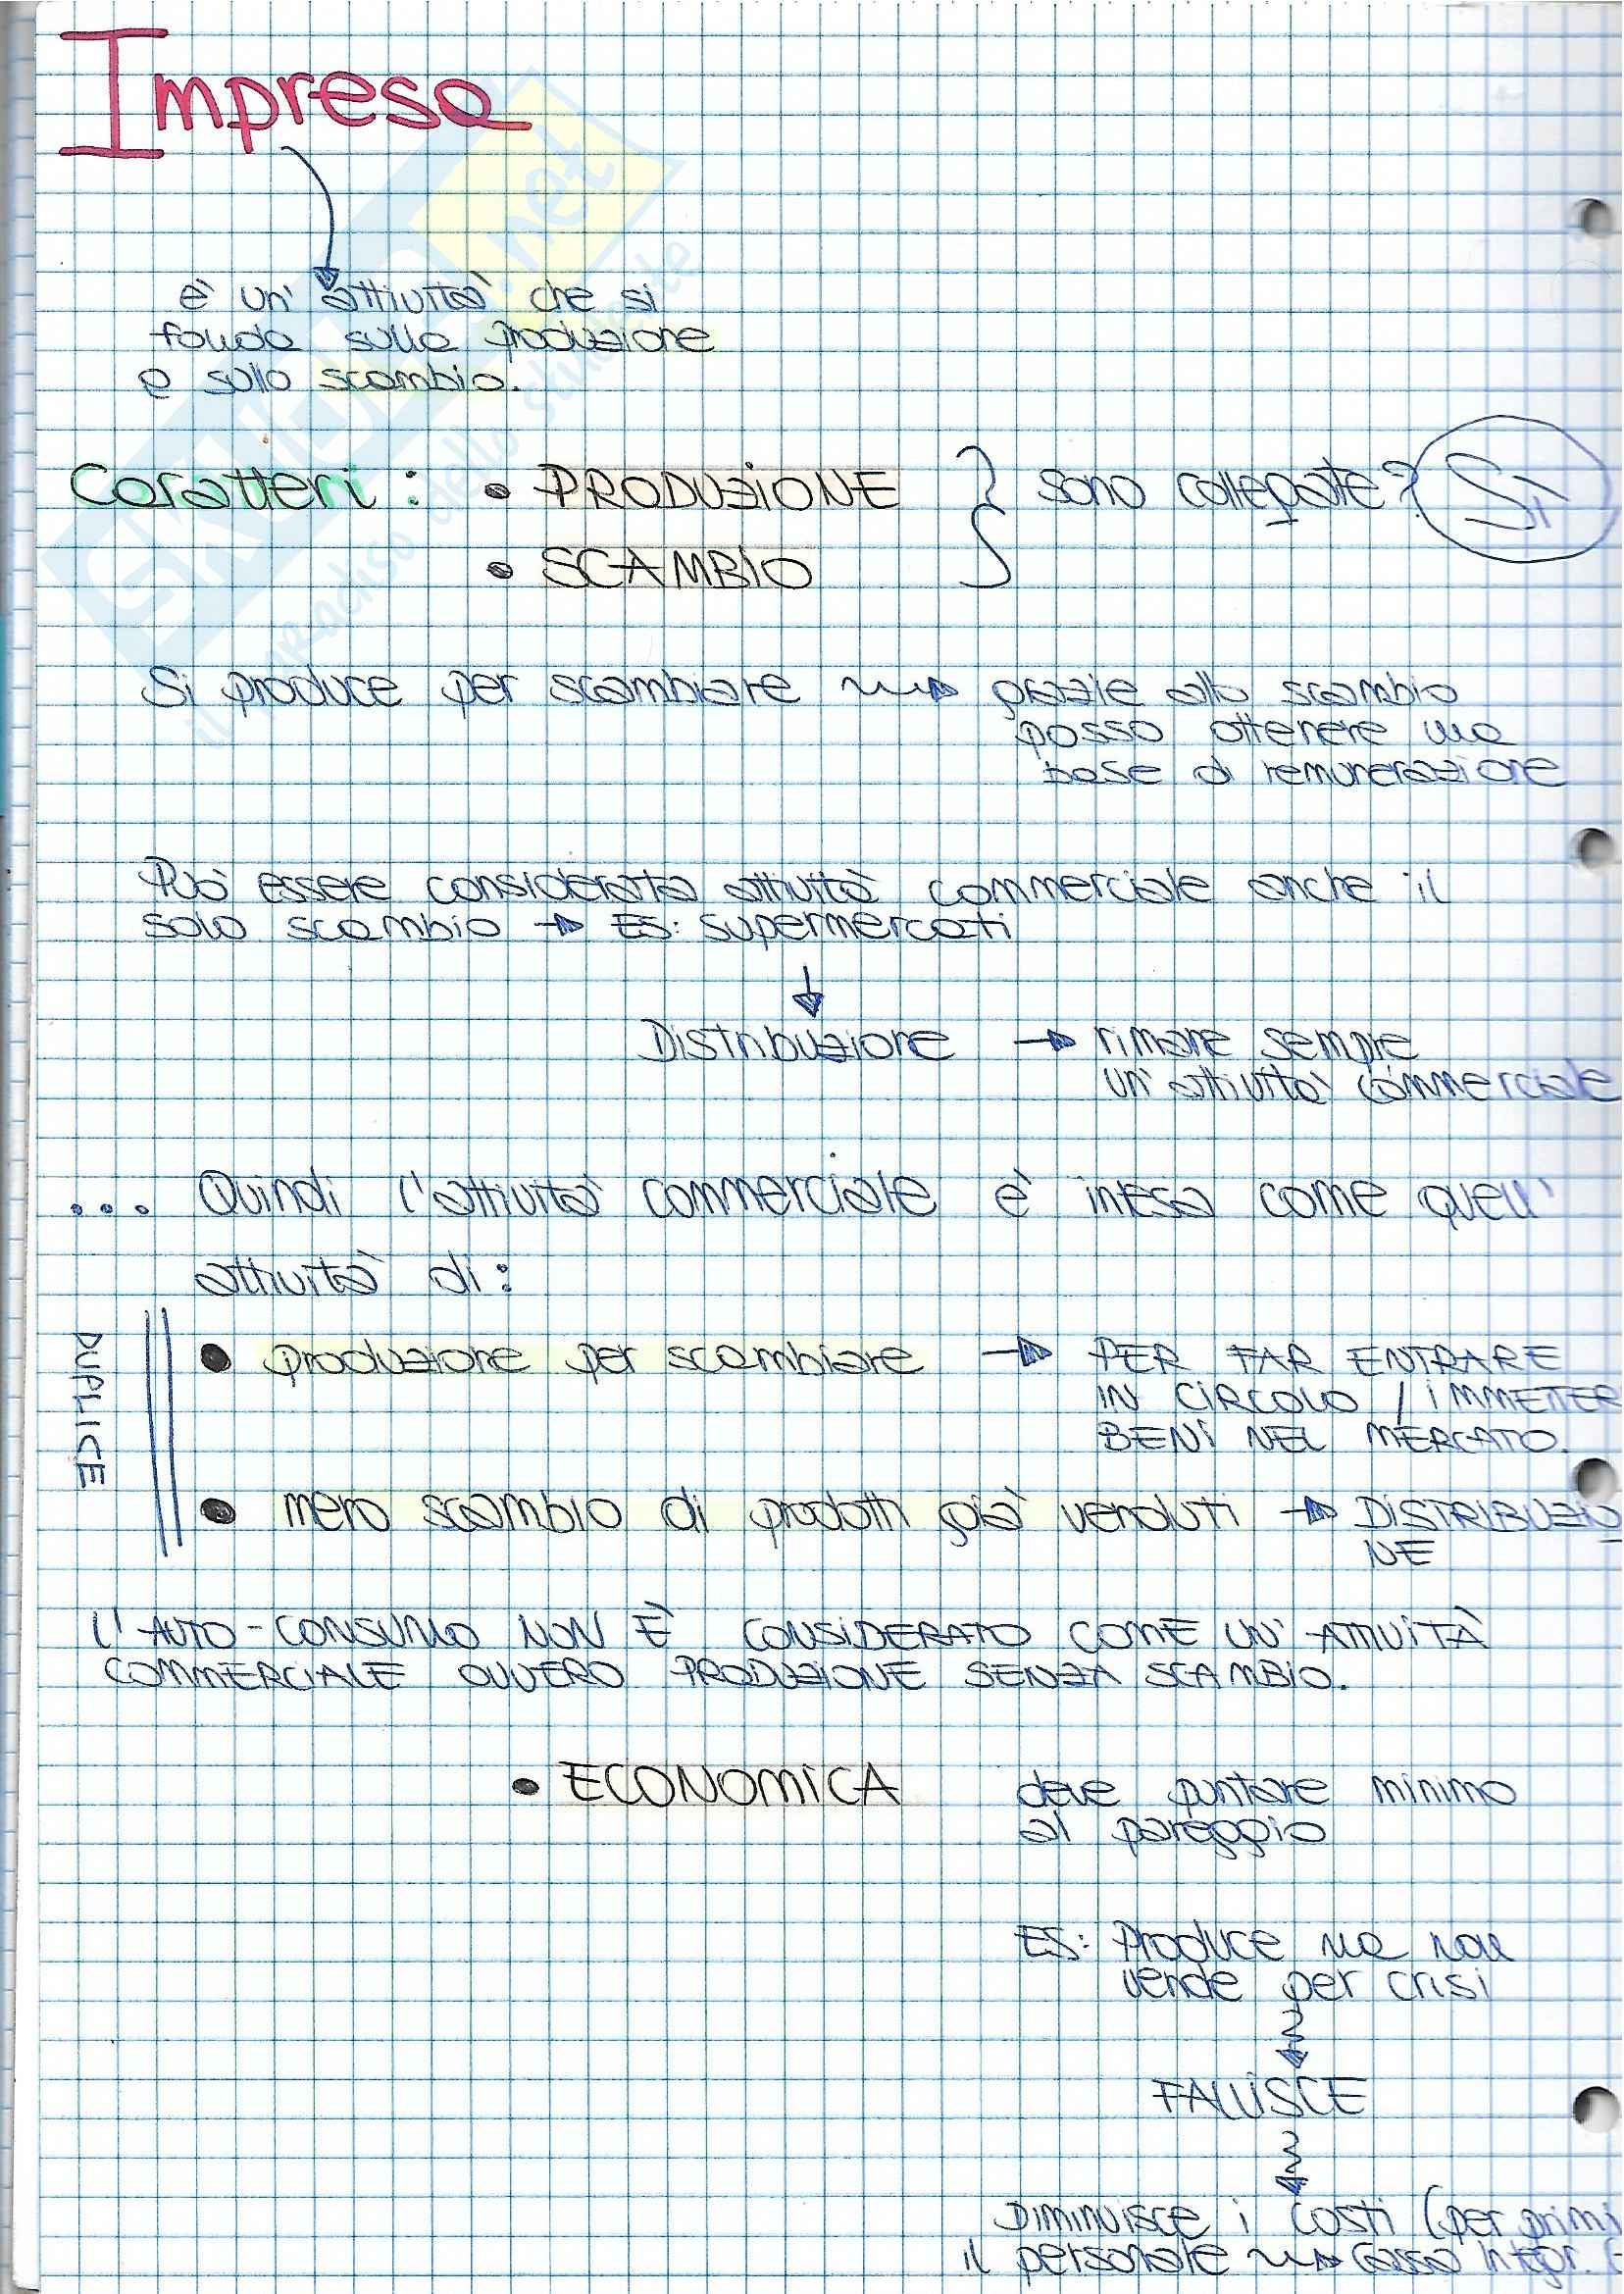 Impresa
è un' attività che si
fonda sulla produzione
e sullo scambio.
Caratteri : • PRODUZIONE } sono collegate? SÌ
• SCAMBIO
Si produce per scambiare → grazie allo scambio
posso ottenere una
base di remunerazione
Può essere considerata attività commerciale anche il
solo scambio → ES: supermercati
↓
Distribuzione → rimane sempre
un' attività commerciale
... Quindi l'attività commerciale è intesa come quell'
attività di:
DUPLICE
• produzione per scambiare → PER FAR ENTRARE
IN CIRCOLO / IMMETTER
BENI NEL MERCATO.
• mero scambio di prodotti già venduti → DISTRIBUZIO
NE
L'AUTO-CONSUMO NON È CONSIDERATO COME UN' ATTIVITÀ
COMMERCIALE OVVERO PRODUZIONE SENZA SCAMBIO.
• ECONOMICA deve puntare minimo
al pareggio
ES: Produce ma non
vende per crisi
FALLISCE
DIMINUISCE i costi (per primi
il personale → Cassa Integr.
SKUOLA.net
il paradiso dello studente